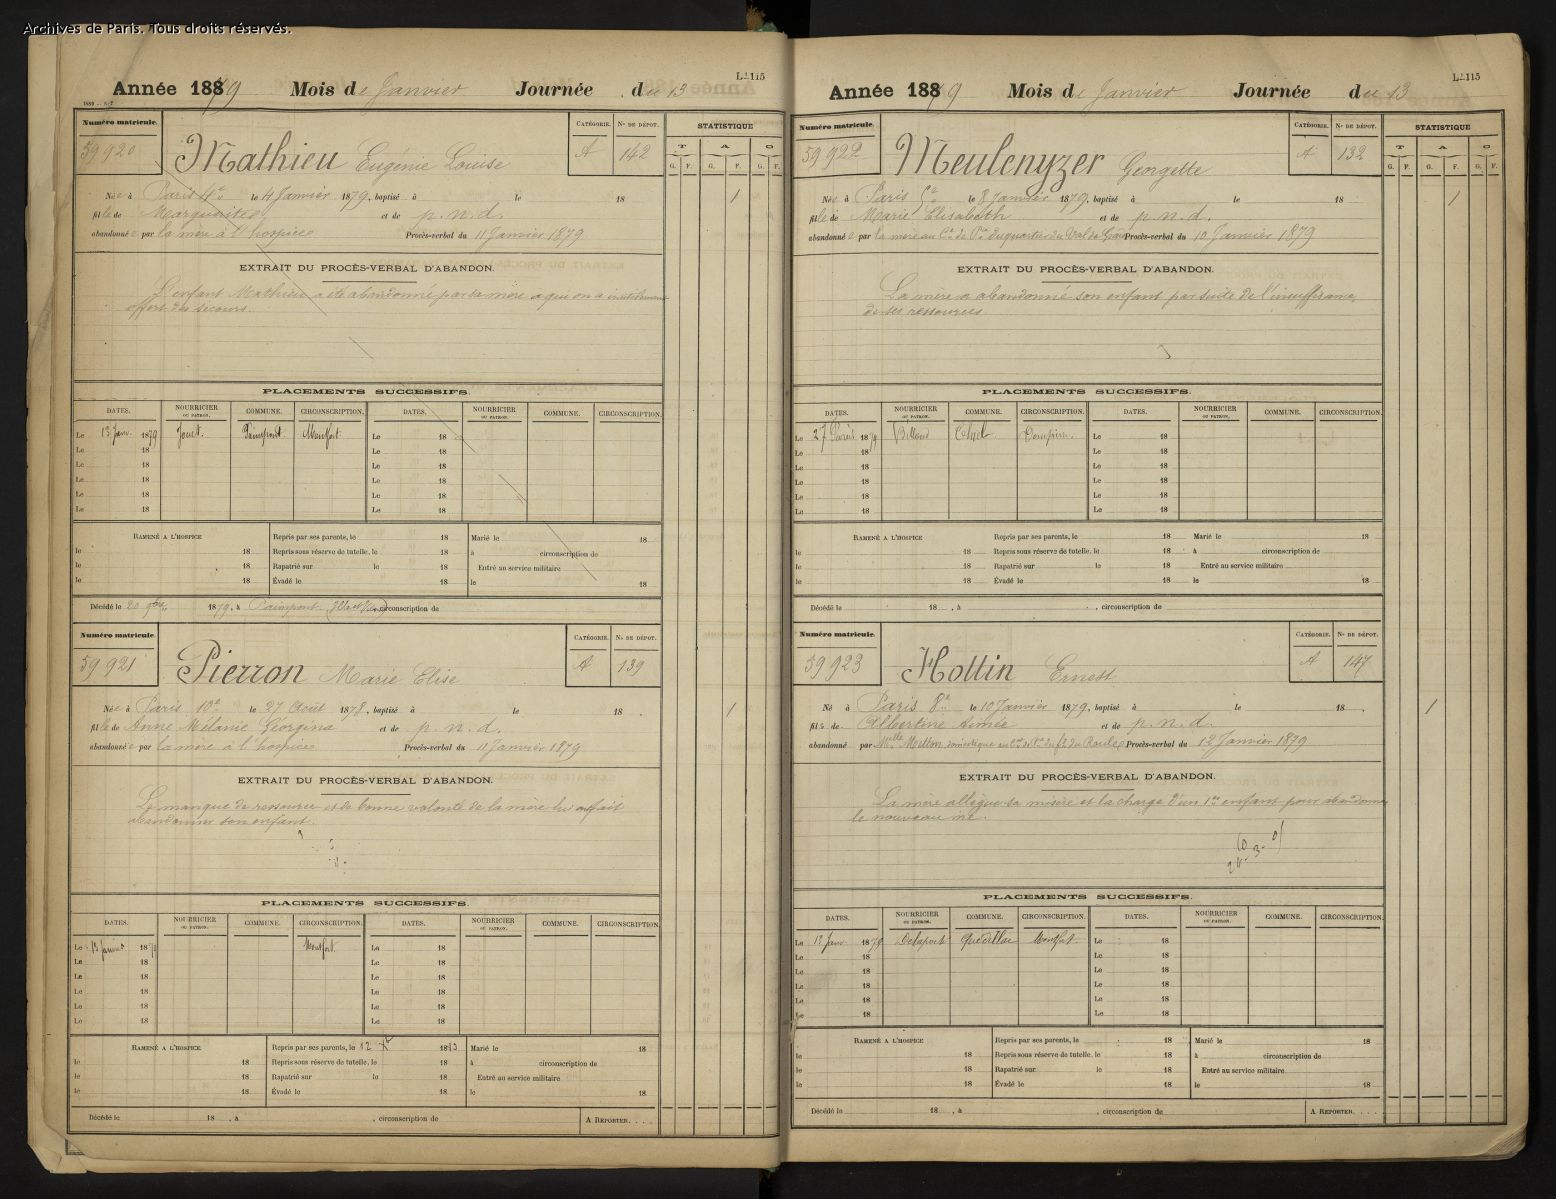 Archives de Paris. Tous droits réservés.
Année 1879 Mois de Janvier Journée du 13
Lt 115
1880 - No 2
Numéro matricule.
59 920
Mathieu Eugénie Louise
CATÉGORIE. A
No DE DÉPOT. 142
STATISTIQUE
T A O
G. F. G. F. G. F.
Née à Paris 4e le 4 Janvier 1879, baptisé à le 18 1
fille de Marguerite et de p. n. d.
abandonnée par la mère à l'hospice Procès-verbal du 11 Janvier 1879
EXTRAIT DU PROCÈS-VERBAL D'ABANDON.
L'enfant Mathieu a été abandonné par sa mère a qui on a inutilement
offert des secours.
PLACEMENTS SUCCESSIFS.
DATES. NOURRICIER OU PATRON. COMMUNE. CIRCONSCRIPTION. DATES. NOURRICIER OU PATRON. COMMUNE. CIRCONSCRIPTION.
Le 13 Janv. 1879 Jouet. Paimpont Montfort. Le 18
Le 18 Le 18
Le 18 Le 18
Le 18 Le 18
Le 18 Le 18
Le 18 Le 18
RAMENÉ A L'HOSPICE Repris par ses parents, le 18 Marié le 18
le 18 Repris sous réserve de tutelle, le 18 à circonscription de
le 18 Rapatrié sur le 18 Entré au service militaire
le 18 Évadé le 18 le 18
Décédé le 20 9bre 1879, à Paimpont circonscription de
Numéro matricule.
59 921
Pierron Marie Elise
CATÉGORIE. A
No DE DÉPOT. 139
Née à Paris 10e le 27 Août 1878, baptisé à le 18 1
fille de Anne Mélanie Georgina et de p. n. d.
abandonnée par la mère à l'hospice Procès-verbal du 11 Janvier 1879
EXTRAIT DU PROCÈS-VERBAL D'ABANDON.
Le manque de ressources et de bonne volonté de la mère lui ont fait
abandonner son enfant.
PLACEMENTS SUCCESSIFS.
DATES. NOURRICIER OU PATRON. COMMUNE. CIRCONSCRIPTION. DATES. NOURRICIER OU PATRON. COMMUNE. CIRCONSCRIPTION.
Le 13 Janvier 1879 Montfort. Le 18
Le 18 Le 18
Le 18 Le 18
Le 18 Le 18
Le 18 Le 18
Le 18 Le 18
RAMENÉ A L'HOSPICE Repris par ses parents, le 12 Xbre 1883 Marié le 18
le 18 Repris sous réserve de tutelle, le 18 à circonscription de
le 18 Rapatrié sur le 18 Entré au service militaire
le 18 Évadé le 18 le 18
Décédé le 18 , à , circonscription de A REPORTER. . . .
Année 1879 Mois de Janvier Journée du 13
Lt 115
Numéro matricule.
59 922
Meulenyzer Georgette
CATÉGORIE. A
No DE DÉPOT. 132
STATISTIQUE
T A O
G. F. G. F. G. F.
Née à Paris 5e le 8 Janvier 1879, baptisé à le 18 1
fille de Marie Elisabeth et de p. n. d.
abandonnée par la mère au Cre de Pce du quartier du Val de Grâce Procès-verbal du 10 Janvier 1879
EXTRAIT DU PROCÈS-VERBAL D'ABANDON.
La mère a abandonné son enfant par suite de l'insuffisance
de ses ressources.
PLACEMENTS SUCCESSIFS.
DATES. NOURRICIER OU PATRON. COMMUNE. CIRCONSCRIPTION. DATES. NOURRICIER OU PATRON. COMMUNE. CIRCONSCRIPTION.
Le 27 1879 Dompierre. Le 18
Le 18 Le 18
Le 18 Le 18
Le 18 Le 18
Le 18 Le 18
Le 18 Le 18
RAMENÉ A L'HOSPICE Repris par ses parents, le 18 Marié le 18
le 18 Repris sous réserve de tutelle, le 18 à circonscription de
le 18 Rapatrié sur le 18 Entré au service militaire
le 18 Évadé le 18 le 18
Décédé le 18 , à , circonscription de
Numéro matricule.
59 923
Hottin Ernest
CATÉGORIE. A
No DE DÉPOT. 147
Né à Paris 8e le 10 Janvier 1879, baptisé à le 18 1
fils de Albertine Aimée et de p. n. d.
abandonné par Melle Millon, domestique au Cre de Pce du fg du Roule Procès-verbal du 12 Janvier 1879
EXTRAIT DU PROCÈS-VERBAL D'ABANDON.
La mère allègue sa misère et la charge d'un 1er enfant pour abandonner
le nouveau né.
PLACEMENTS SUCCESSIFS.
DATES. NOURRICIER OU PATRON. COMMUNE. CIRCONSCRIPTION. DATES. NOURRICIER OU PATRON. COMMUNE. CIRCONSCRIPTION.
Le 13 Janv 1879 Delaport Quédillac Montfort. Le 18
Le 18 Le 18
Le 18 Le 18
Le 18 Le 18
Le 18 Le 18
Le 18 Le 18
RAMENÉ A L'HOSPICE Repris par ses parents, le 18 Marié le 18
le 18 Repris sous réserve de tutelle, le 18 à circonscription de
le 18 Rapatrié sur le 18 Entré au service militaire
le 18 Évadé le 18 le 18
Décédé le 18 , à , circonscription de A REPORTER. . . .